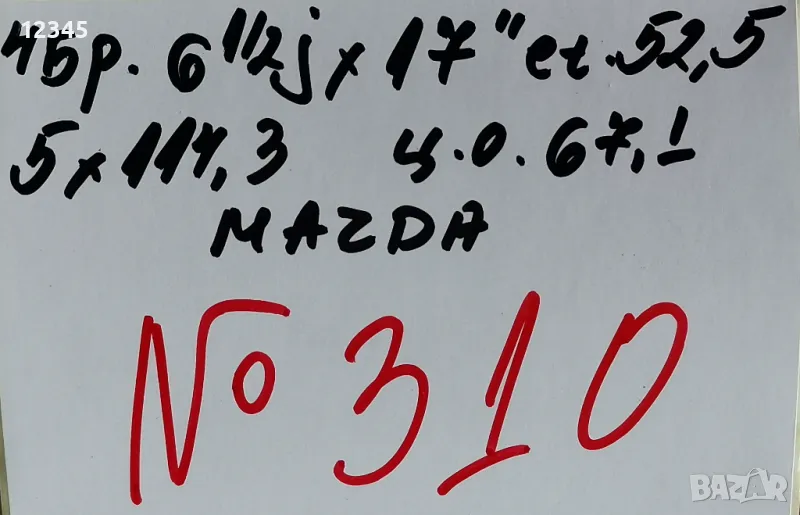 12345
4бр. 6 1/2j x 17" et. 52,5
5 x 114,3 ц.о. 67,1
MAZDA
№ 310
BAZAR